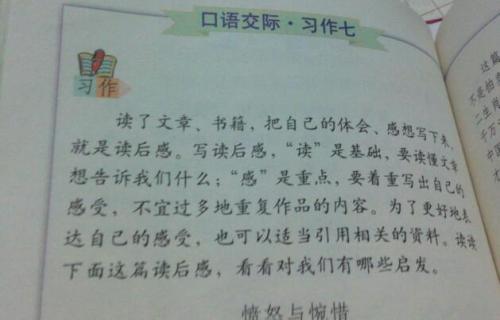 口语交际·习作七
习作
读了文章、书籍，把自己的体会、感想写下来，
就是读后感。写读后感，“读”是基础，要读懂文章
想告诉我们什么；“感”是重点，要着重写出自己的
感受，不宜过多地重复作品的内容。为了更好地表
达自己的感受，也可以适当引用相关的资料。读读
下面这篇读后感，看看对我们有哪些启发。
愤怒与惋惜
这篇
不是拍
二生
千万
中国